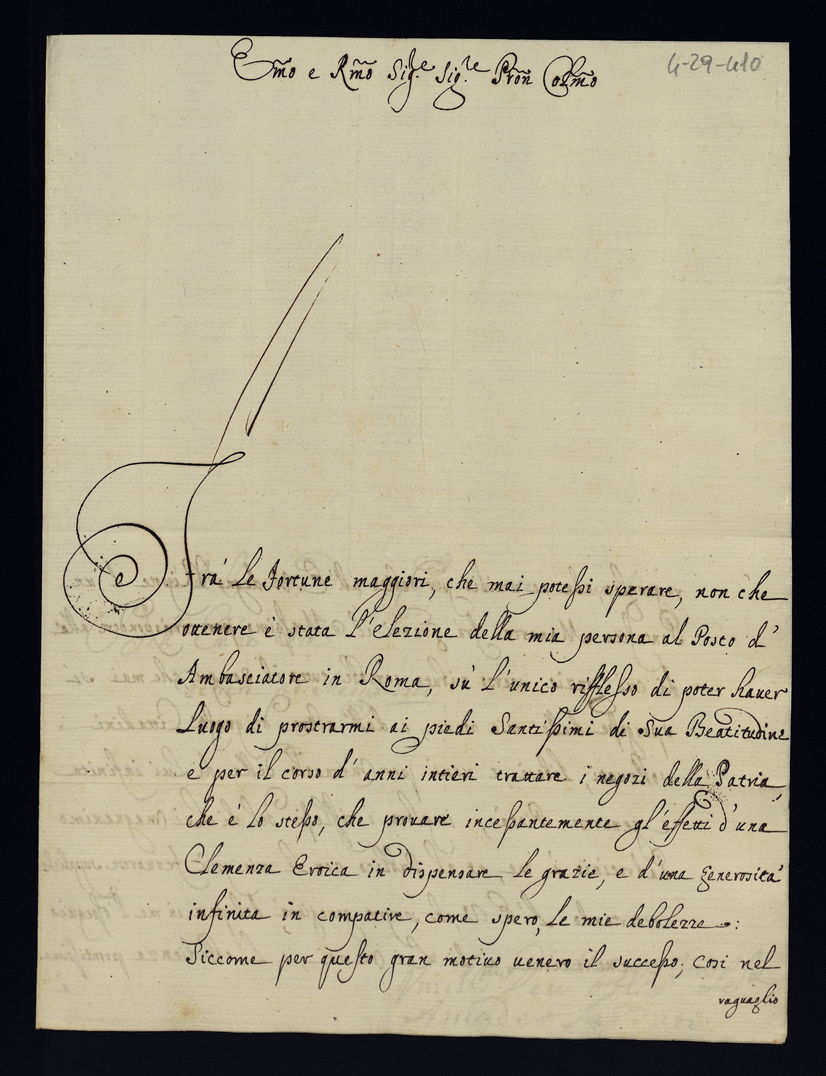 Em̃o e Rm̃o Sig.re Sig.re Pron̄ Colm̃o
4-29-410
Trà le Fortune maggiori, che mai poteßi sperare, non che
ottenere è stata l'elezione della mia persona al Posto d'
Ambasciatore in Roma, sù l'unico rifflesso di poter haver
luogo di prostrarmi ai piedi Santißimi di Sua Beatitudine
e per il corso d'anni intieri trattare i negozi della Patria,
che è lo steßo, che prouare inceßantemente gl'effetti d'una
Clemenza Eroica in dispensare le grazie, e d'una generosità
infinita in compatire, come spero, le mie debolezze:
Siccome per questo gran motiuo uenero il succeßo; cosi nel
raguaglio